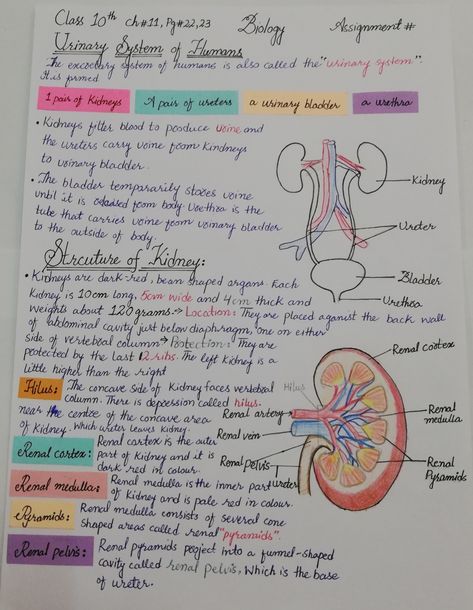 Class 10th Ch#11, Pg#22,23 Biology Assignment #
Urinary System of Humans
The excoctory system of humans is also called the "urinary system".
It is formed
1 pair of Kidneys
A pair of ureters
a urinary bladder
a urethra
• Kidneys filter blood to produce urine and
the ureters carry urine from Kindneys
to urinary bladder.
• The bladder temprarily stores urine
until it is from body. Urethra is the
tube that carries urine from urinary bladder
to the outside of body.
Kidney
Ureter
Bladder
Urethra
Strcuture of Kidney:
• Kidneys are dark-red, bean shaped organs. Each
Kidney is 10cm long, 5cm wide and 4cm thick and
weights about 120grams.-> Location: They are placed aganist the back wall
of abdominal cavity just below diaphragm, one on either
side of vertebral column-> Protection: They are
protected by the last 12 ribs. The left Kidney is a
little higher than the right
Hilus: The concave side of Kidney faces vertebral
column. There is depession called hilus.
near the centre of the concave area
of Kidney. Which ureter leaves Kidney.
Renal cortex: Renal cortex is the outer
part of Kidney and it is
dark red in colour.
Renal medulla: Renal medulla is the inner part
of Kidney and is pale red in colour.
Pyramids: Renal medulla consists of several cone
shaped areas called renal "pyramids".
Renal pelvis: Renal pyramids project into a funnel-shaped
cavity called renal pelvis, Which is the base
of ureter.
Renal cortex
Hilus
Renal artery
Renal medulla
Renal vein
Renal pelvis
Renal Pyramids
ureter